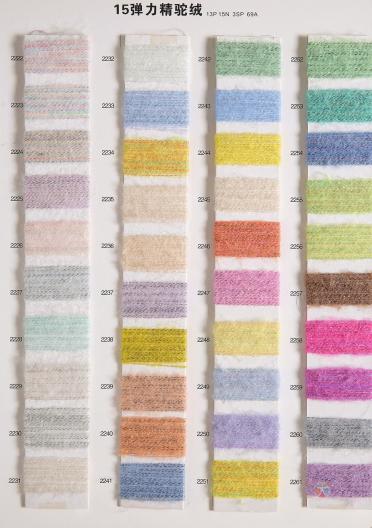 15弹力精驼绒 13P 15N 3SP 69A
2222
2223
2224
2225
2226
2227
2228
2229
2230
2231
2232
2233
2234
2235
2236
2237
2238
2239
2240
2241
2242
2243
2244
2245
2246
2247
2248
2249
2250
2251
2252
2253
2254
2255
2256
2257
2258
2259
2260
2261